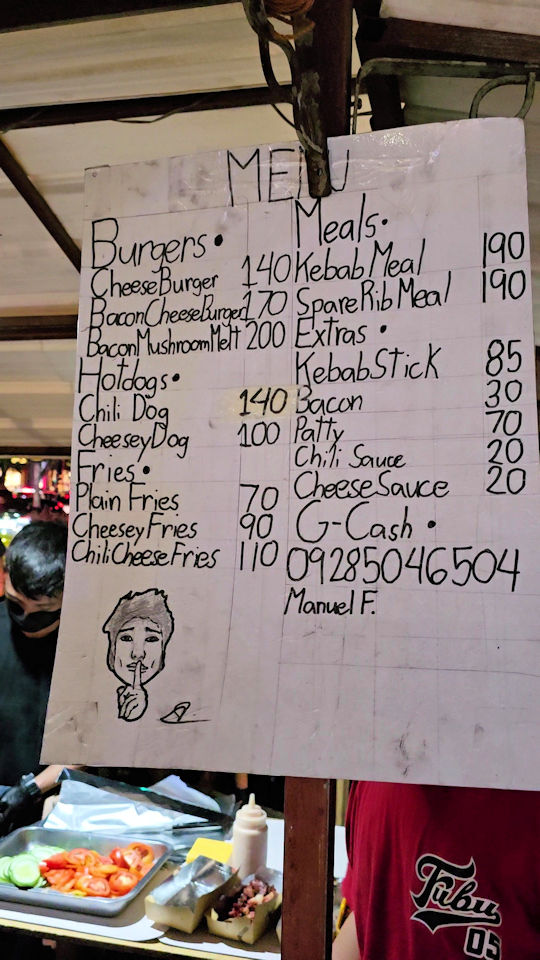 MENU
Burgers•
CheeseBurger 140
BaconCheeseBurger 170
BaconMushroomMelt 200
Hotdogs•
Chili Dog 140
CheeseyDog 100
Fries•
Plain Fries 70
Cheesey Fries 90
ChiliCheeseFries 110
Meals•
Kebab Meal 190
SpareRib Meal 190
Extras•
KebabStick 85
Bacon 30
Patty 70
Chili Sauce 20
CheeseSauce 20
G-Cash•
09285046504
Manuel F.
Fubu
05